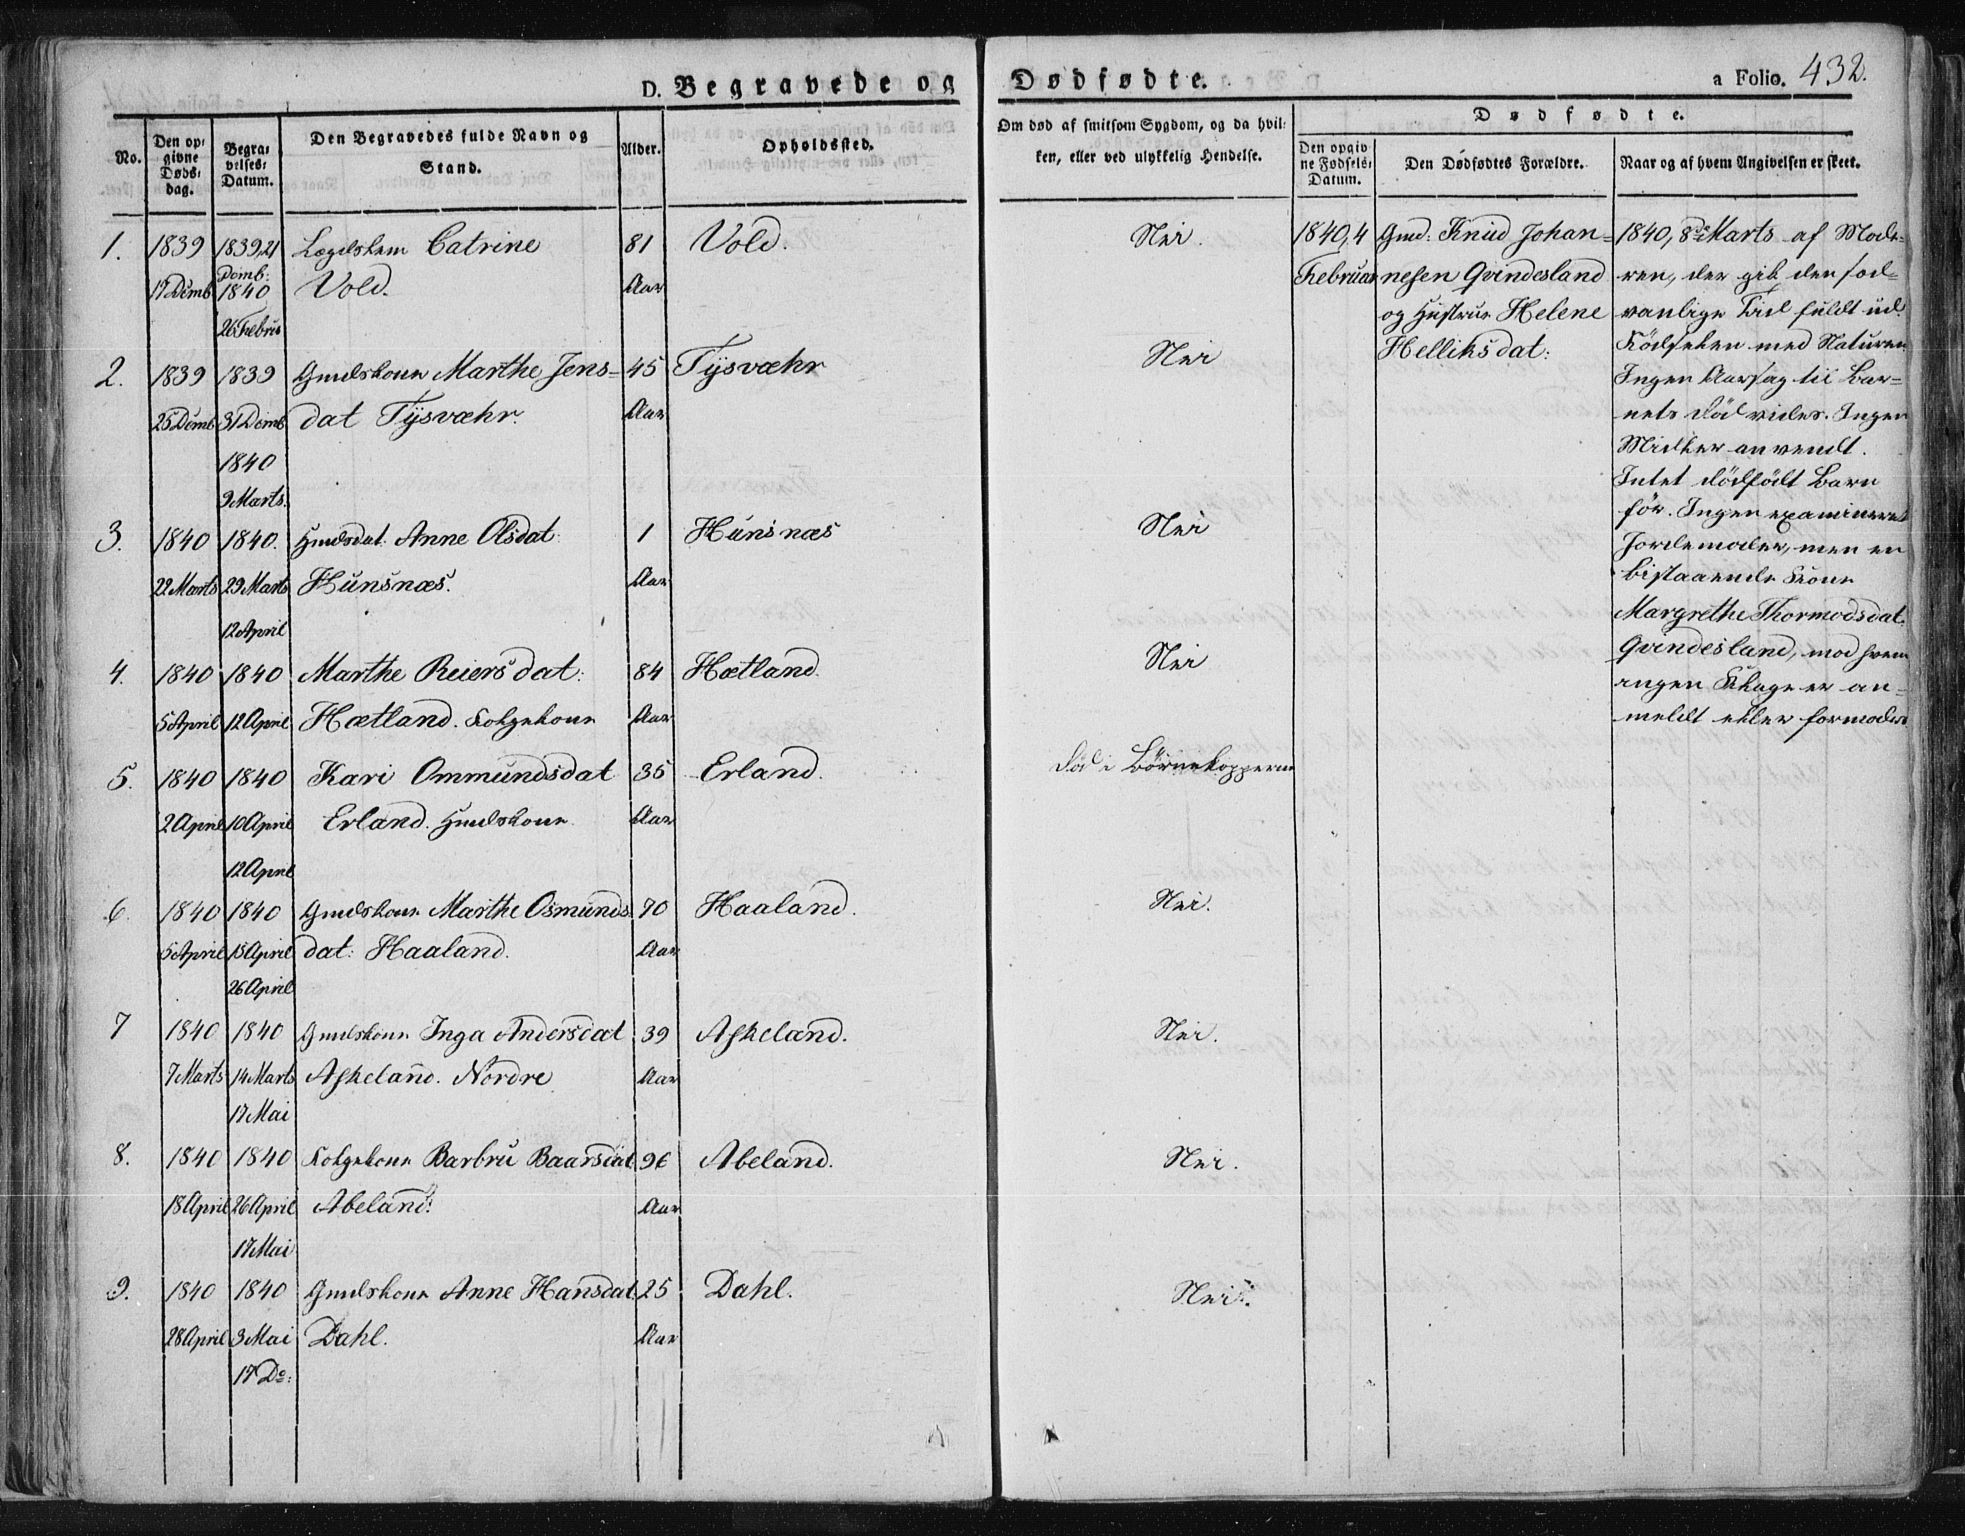 D. Begravede og
Dødfødte.
a Folio. 432.
No.
Den op-
givne
Døds-
dag.
Begra-
velses-
Datum.
Den Begravedes fulde Navn og
Stand.
Alder.
Opholdssted.
Om død af smitsom Sygdom, og da hvil-
ken, eller ved ulykkelig Hendelse.
Dødfødte.
Den opgiv-
ne Fødsels-
Datum.
Den Dødfødtes Forældre.
Naar og af hvem Angivelsen er skeet.
1. 1839 1839, 21 Lægdslem Catrine 81 Vold. Nei.
17 Demb Demb: 1840 Vold. Aar
26 Februa
2. 1839 1839 Gmdskone Marthe Jens= 45 Tysvæhr Nei
25 Demb 31 Demb dat Tysvæhr. Aar
1840
9 Marts.
3. 1840 1840. Hmdsdat: Anne Olsdat: 1 Hunsnæs Nei
22 Marts 29 Marts Hunsnæs. Aar
12 April
4. 1840 1840 Marthe Reiersdat: 84 Hætland. Nei
5 April 12 April Hætland. Folgekone Aar
5. 1840 1840 Kari Ommundsdat 35 Erland. død i Børnekopperne
2 April 10 April Erland. Hmdskone Aar
12 April
6. 1840 1840 Gmdskone Marthe Osmunds 70 Haaland. Nei.
5 April 15 April dat: Haaland. Aar
26 April
7 1840 1840 Gmdskone Inga Andersdat 39 Askeland. Nei.
7 Marts 14 Marts Askeland. Nordre Aar
17 Mai
8. 1840 1840 Folgekone Barbru Baarsdat 96 Abeland. Nei.
18 April 26 April Abeland. Aar
17 Mai
9. 1840 1840 Gmdskone Anne Hansdat. 25 Dahl. Nei.
28 April 3 Mai Dahl. Aar
17 Do:
1840, 4
Februar
Gmd. Knud Johan=
nesen Qvindesland
og Hustrue Helene
Helliksdat:
1840, 8de Marts af Mode=
ren, der gik den sed=
vanlige Tid fuldt ud.
Fødselen med Naturen
Ingen Aarsag til Bar=
nets død vides. Ingen
Midler anvendt.
Intet dødfødt Barn
før. Ingen examineret
Jordemoder, men en
bistaaende Kone
Margrethe Thormodsdat.
Qvindesland, mod hvem
ingen Klage er an=
meldt eller formodes